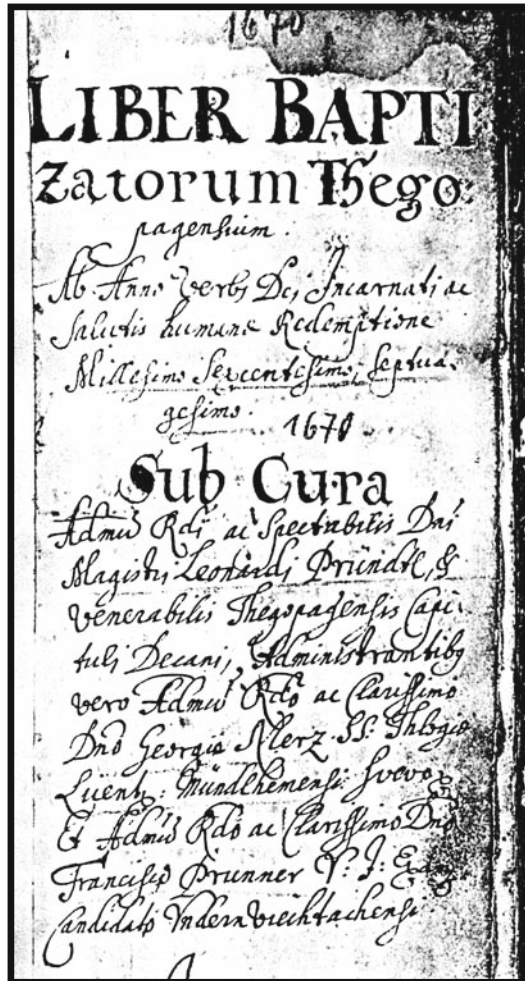 1670
LIBER BAPTI
zatorum Thego:
pagensium.
Ab Anno Verbi Dei Incarnati ac
Salutis humanæ Redemptione
Millesimo Sexcentesimo, septua-
gesimo.
1670
Sub Cura
Admodū Rdi ac Spectabilis Dni
Magistri Leonardi Pründtl, &
Venerabilis Thegopagensis Capi-
tuli Decani, Administrantibq
vero Admodū Rdo ac Clarissimo
Dno Georgio Merz SS: Thlogiæ
Licent: Mündlhemensi Suevo
Et Admodū Rdo ac Clarissimo Dno
Francisco Prunner V: J:
Candidato Undernviechtachensi